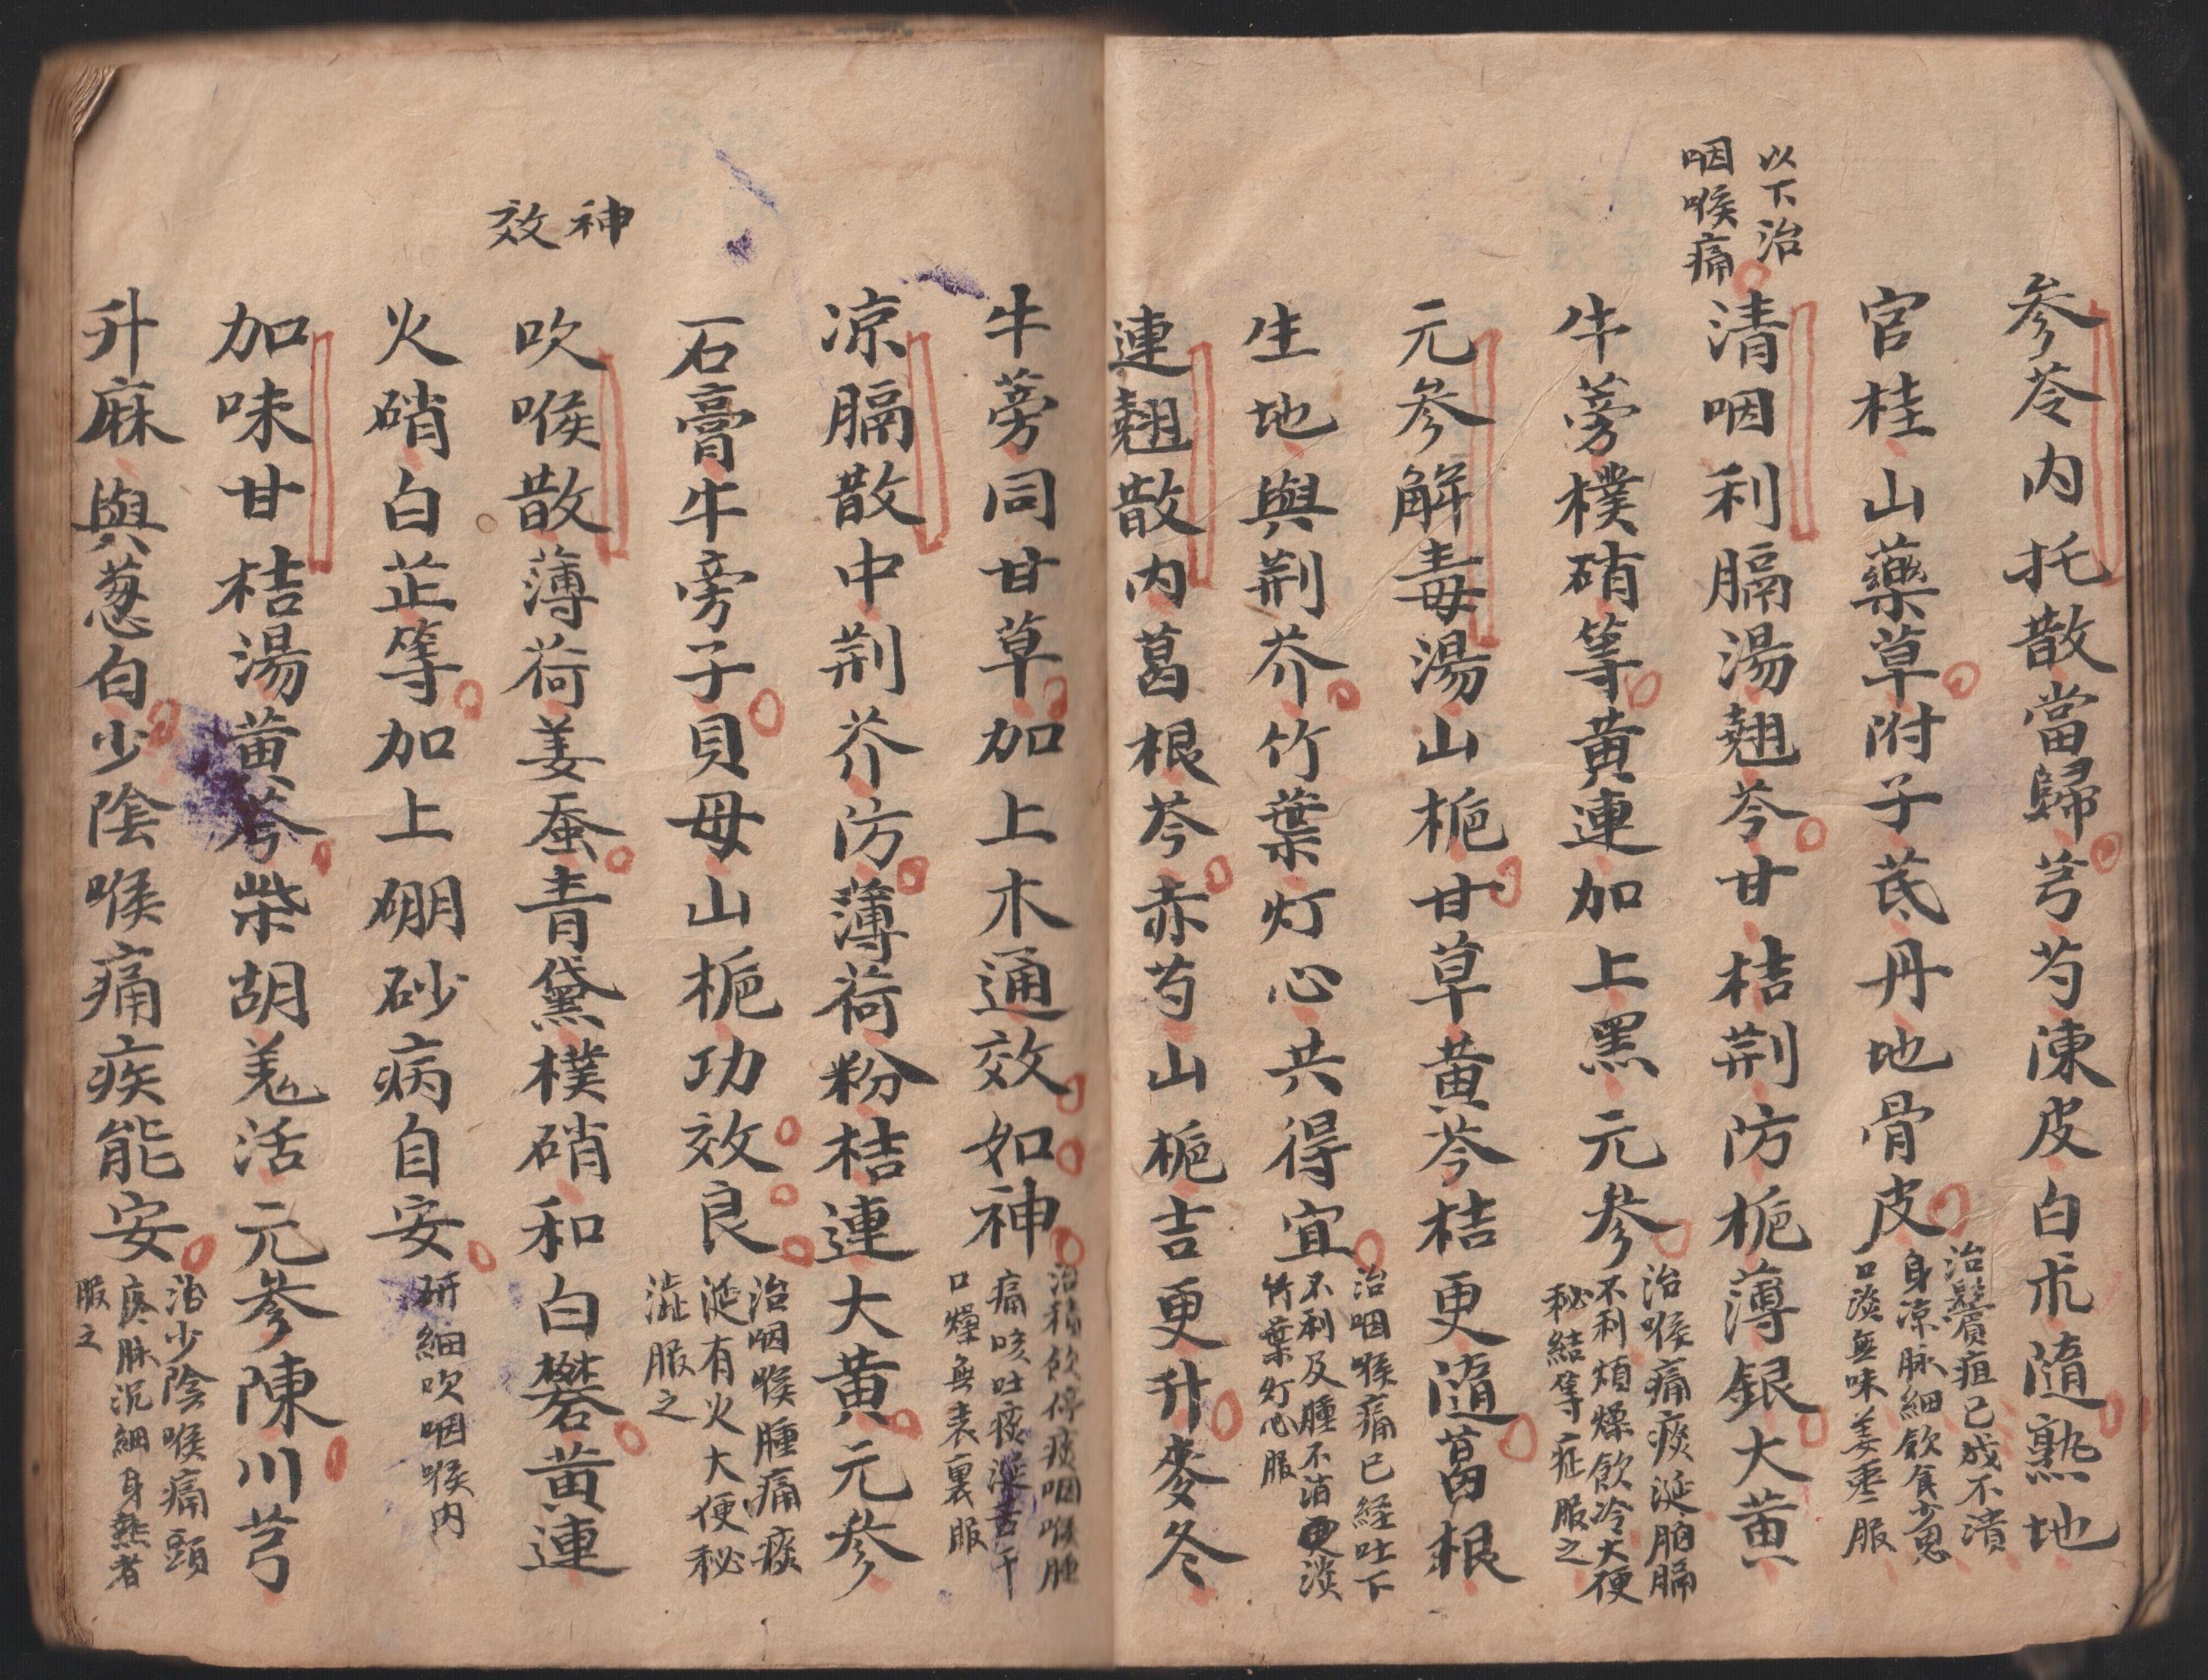 参苓内托散當歸芎芍陳皮白朮隨熟地
官桂山藥草附子茋丹地骨皮
治鬢疽已成不潰
身凉脉細飲食少思
口淡無味姜棗服
以下治
咽喉痛
清咽利膈湯翘芩甘桔荆防梔薄銀大黄
牛蒡樸硝等黄連加上黑元參
治喉痛痰涎胸膈
不利煩燥飲冷大便
秘結等症服之
元參解毒湯山梔甘草黄芩桔更隨葛根
生地與荆芥竹葉灯心共得宜
治咽喉痛已經吐下
不利及腫不消更淡
竹葉灯心服
連翘散内葛根芩赤芍山梔吉更升麥冬
牛蒡同甘草加上木通效如神
治積飲停痰咽喉腫
痛咳吐痰涎舌干
口燥無表裏服
凉膈散中荆芥防薄荷粉桔連大黄元參
石膏牛旁子貝母山梔功效良
治咽喉腫痛痰
涎有火大便秘
澁服之
神效
吹喉散薄荷姜蚕青黛樸硝和白礬黄連
火硝白芷等加上硼砂病自安
研細吹咽喉内
加味甘桔湯黄芩柴胡羗活元參陳川芎
升麻與葱白少陰喉痛疾能安
治少陰喉痛頭
疼脉沉細身熱者
服之